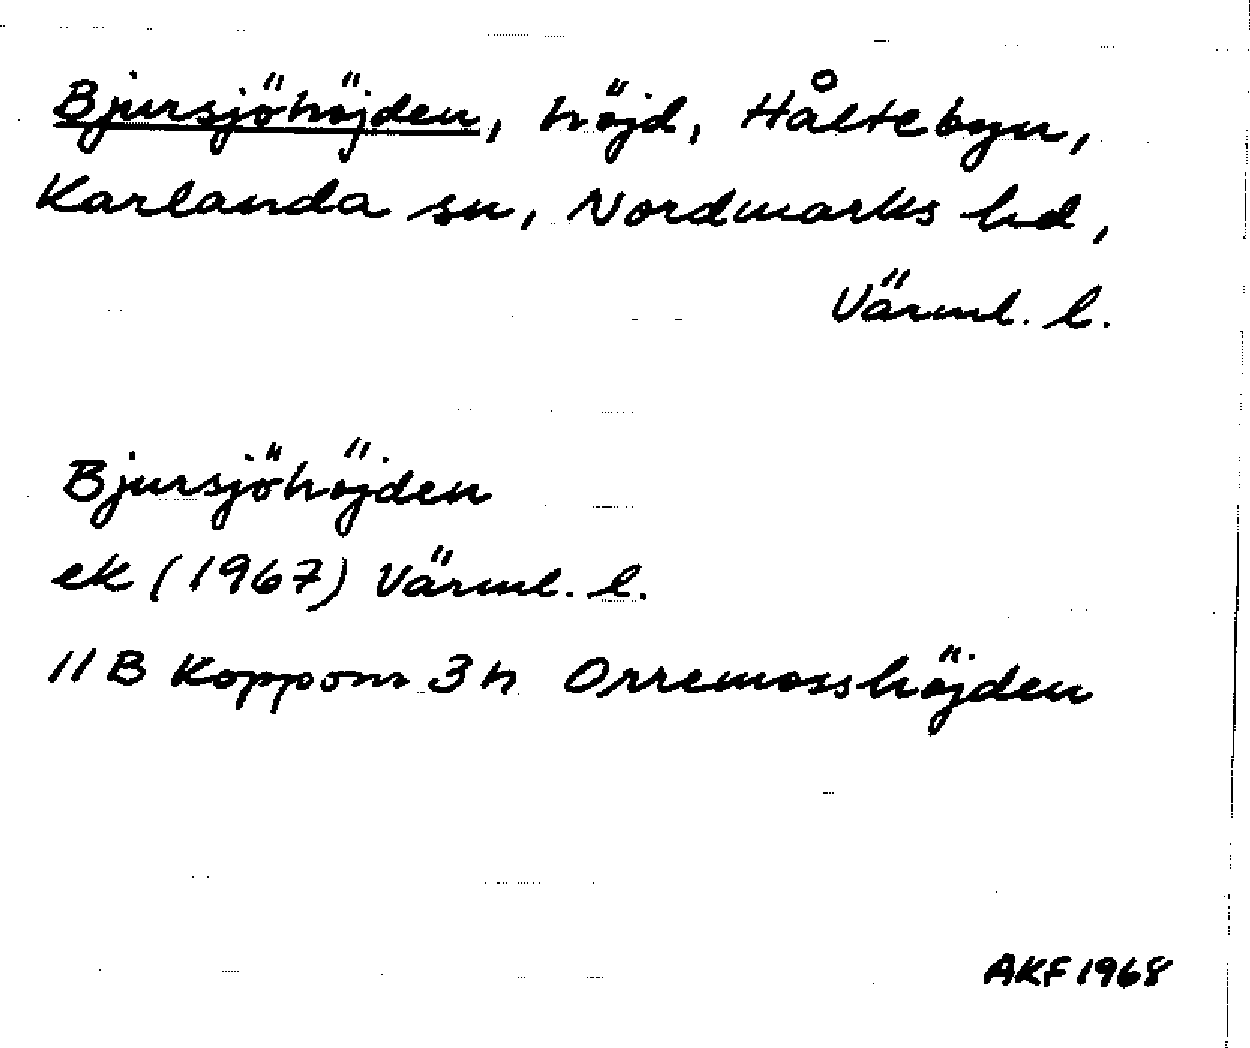 Bjursjöhöjden, höjd, Håltebyn,
Karlanda sn, Nordmarks hd,
Värml. l.
Bjursjöhöjden
ek (1967) Värml. l.
11 B Koppom 3 h Orremosshöjden
AKF 1968